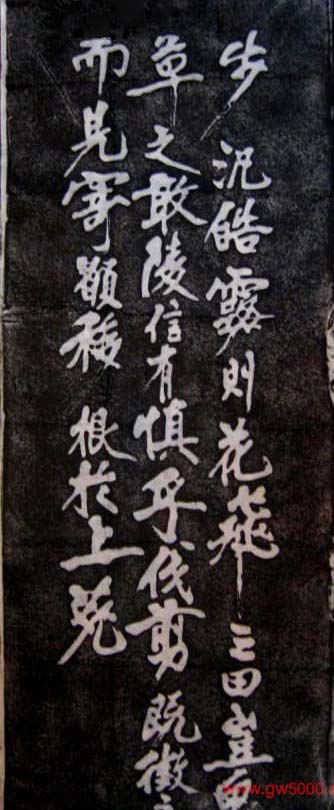 步況皓露則花飛三田豈百
草之敢陵信有慎乎伐剪既徵
而見寄願移根於上苑
www.gw5000.